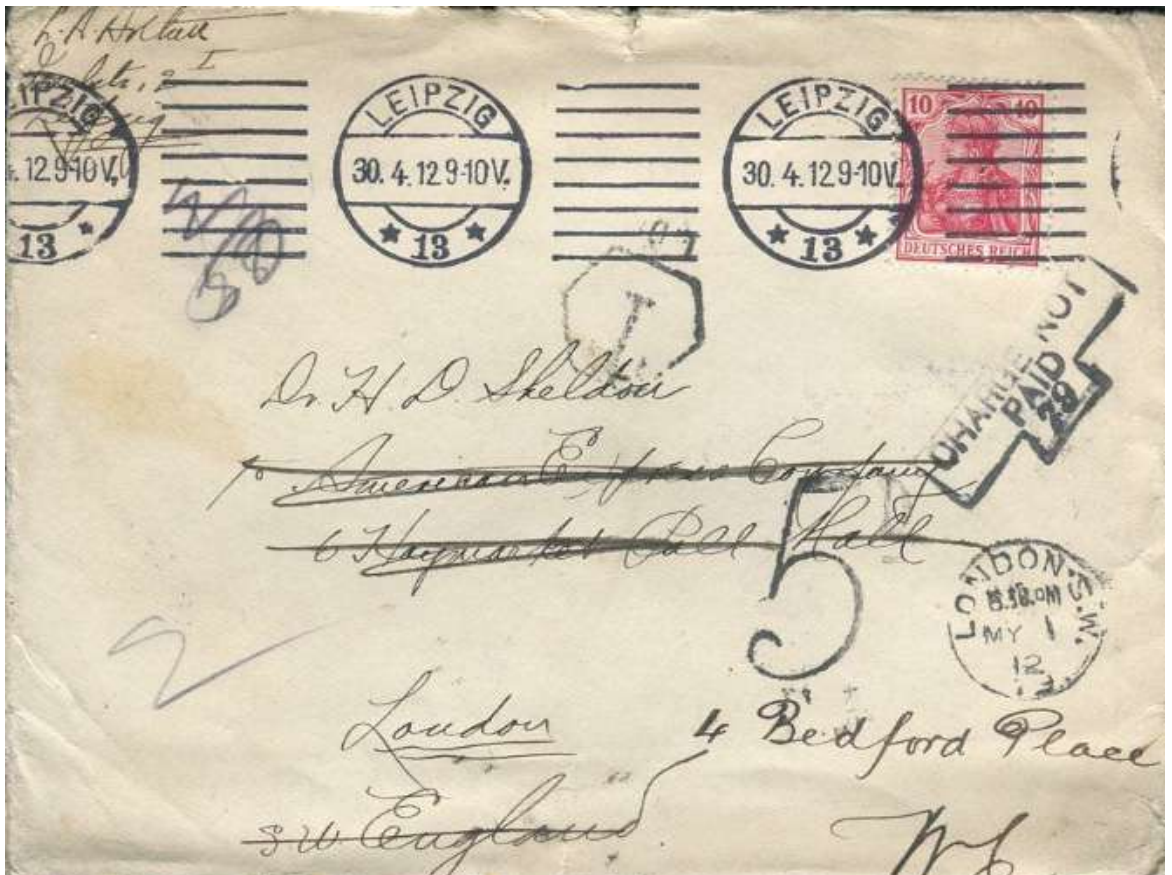 LEIPZIG
30. 4. 12 9-10V.
* 13 *
LEIPZIG
30. 4. 12 9-10V.
* 13 *
LEIPZIG
4. 12 9-10V.
13
10 10
DEUTSCHES REICH
T
CHARGE NOT
PAID
79
Dr. H. D. Sheldon
American Express Company
6 Haymarket Pall Mall
5D
LONDON.S.W.
MY 1
12
London
4 Bedford Place
S W England